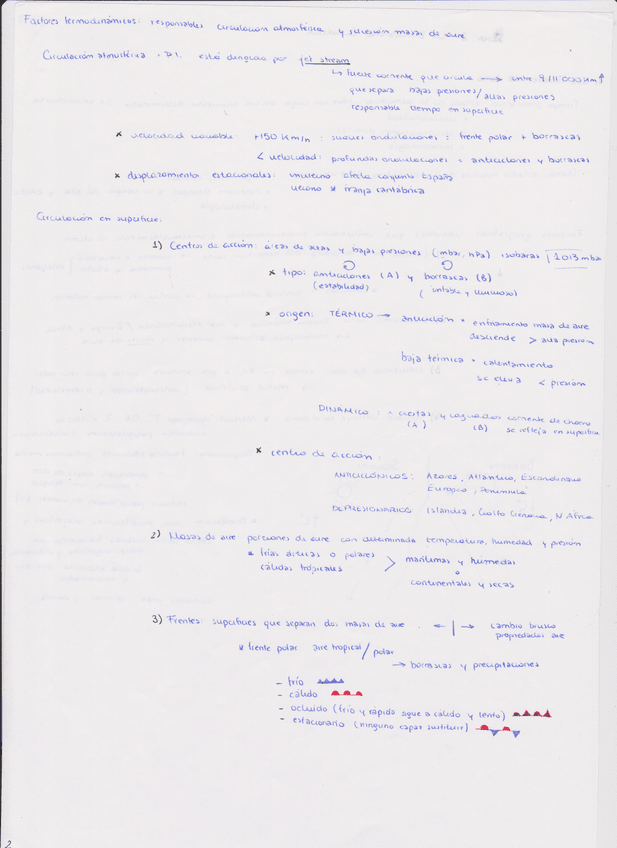 Factores termodinámicos: responsables circulación atmosférica y sucesión masas de aire
Circulación atmosférica está dirigida por jet stream
↳ fuerte corriente que circula → entre 9/11.000 km ↑
que separa bajas presiones/altas presiones
responsable tiempo en superficie
* velocidad variable: +150 Km/h: suaves ondulaciones: frente polar + borrascas
< velocidad: profundas ondulaciones = anticiclones y borrascas
* desplazamiento estacionales: invierno afecta conjunto España
verano * franja cantábrica
Circulación en superficie:
1) Centros de acción: áreas de altas y bajas presiones (mbar, hPa) isobaras 1013 mbar
* tipo: anticiclones (A) y borrascas (B)
(estabilidad) (inestable y lluvioso)
* origen: TÉRMICO → anticiclón = enfriamiento masa de aire
desciende > alta presión
baja térmica = calentamiento
se eleva < presión
DINÁMICO: crestas y vaguadas corriente de chorro
(A) (B) se refleja en superficie
* centro de acción:
ANTICICLÓNICOS: Azores, Atlántico, Escandinavo
Europeo, Península
DEPRESIONARIOS: Islandia, Golfo Génova, N. África
2) Masas de aire porciones de aire con determinada temperatura, humedad y presión
* frías árticas o polares > marítimas y húmedas
cálidas tropicales o
continentales y secas
3) Frentes: superficies que separan dos masas de aire ← | → cambio brusco
propiedades aire
* frente polar aire tropical/polar
→ borrascas y precipitaciones
- frío
- cálido
- ocluido (frío y rápido sigue a cálido y lento)
- estacionario (ninguno capaz sustituir)
2